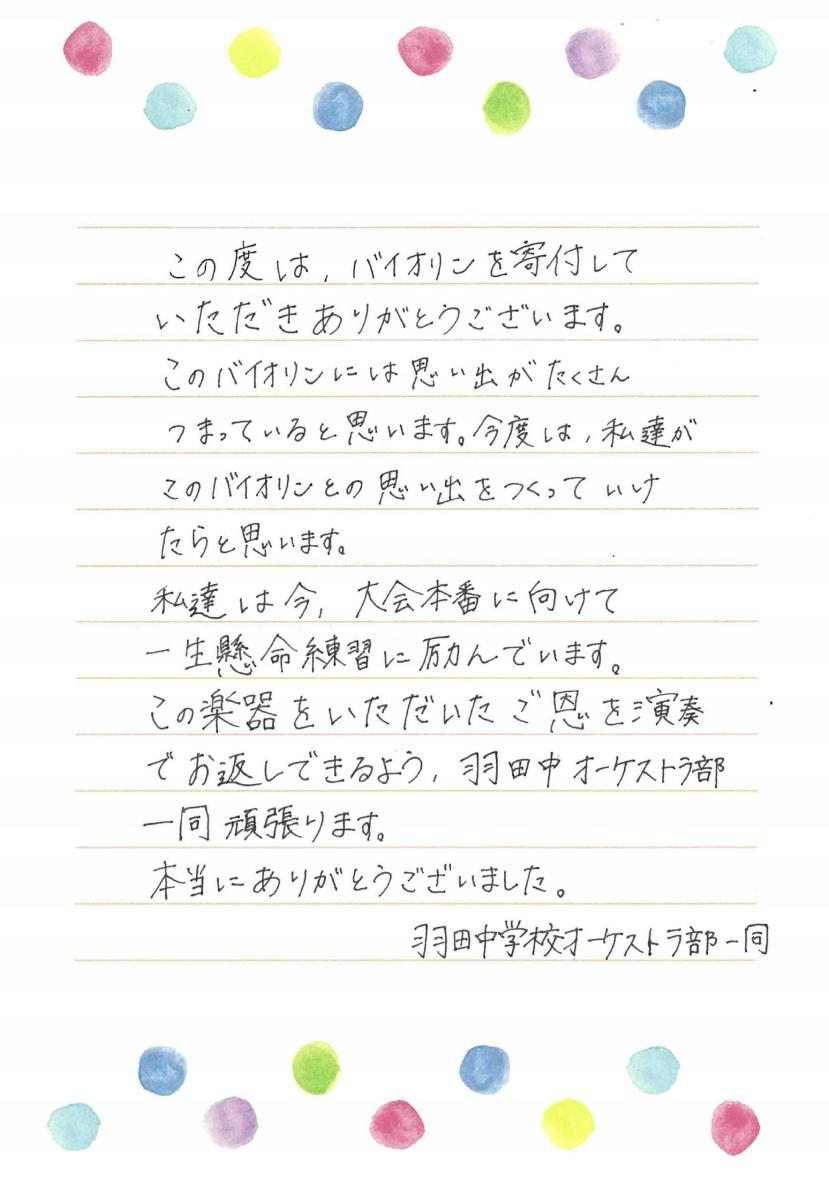 この度は、バイオリンを寄付して
いただきありがとうございます。
このバイオリンには思い出がたくさん
つまっていると思います。今度は、私達が
このバイオリンとの思い出をつくっていけ
たらと思います。
私達は今、大会本番に向けて
一生懸命練習に励んでいます。
この楽器をいただいたご恩を演奏
でお返しできるよう、羽田中オーケストラ部
一同頑張ります。
本当にありがとうございました。
羽田中学校オーケストラ部一同